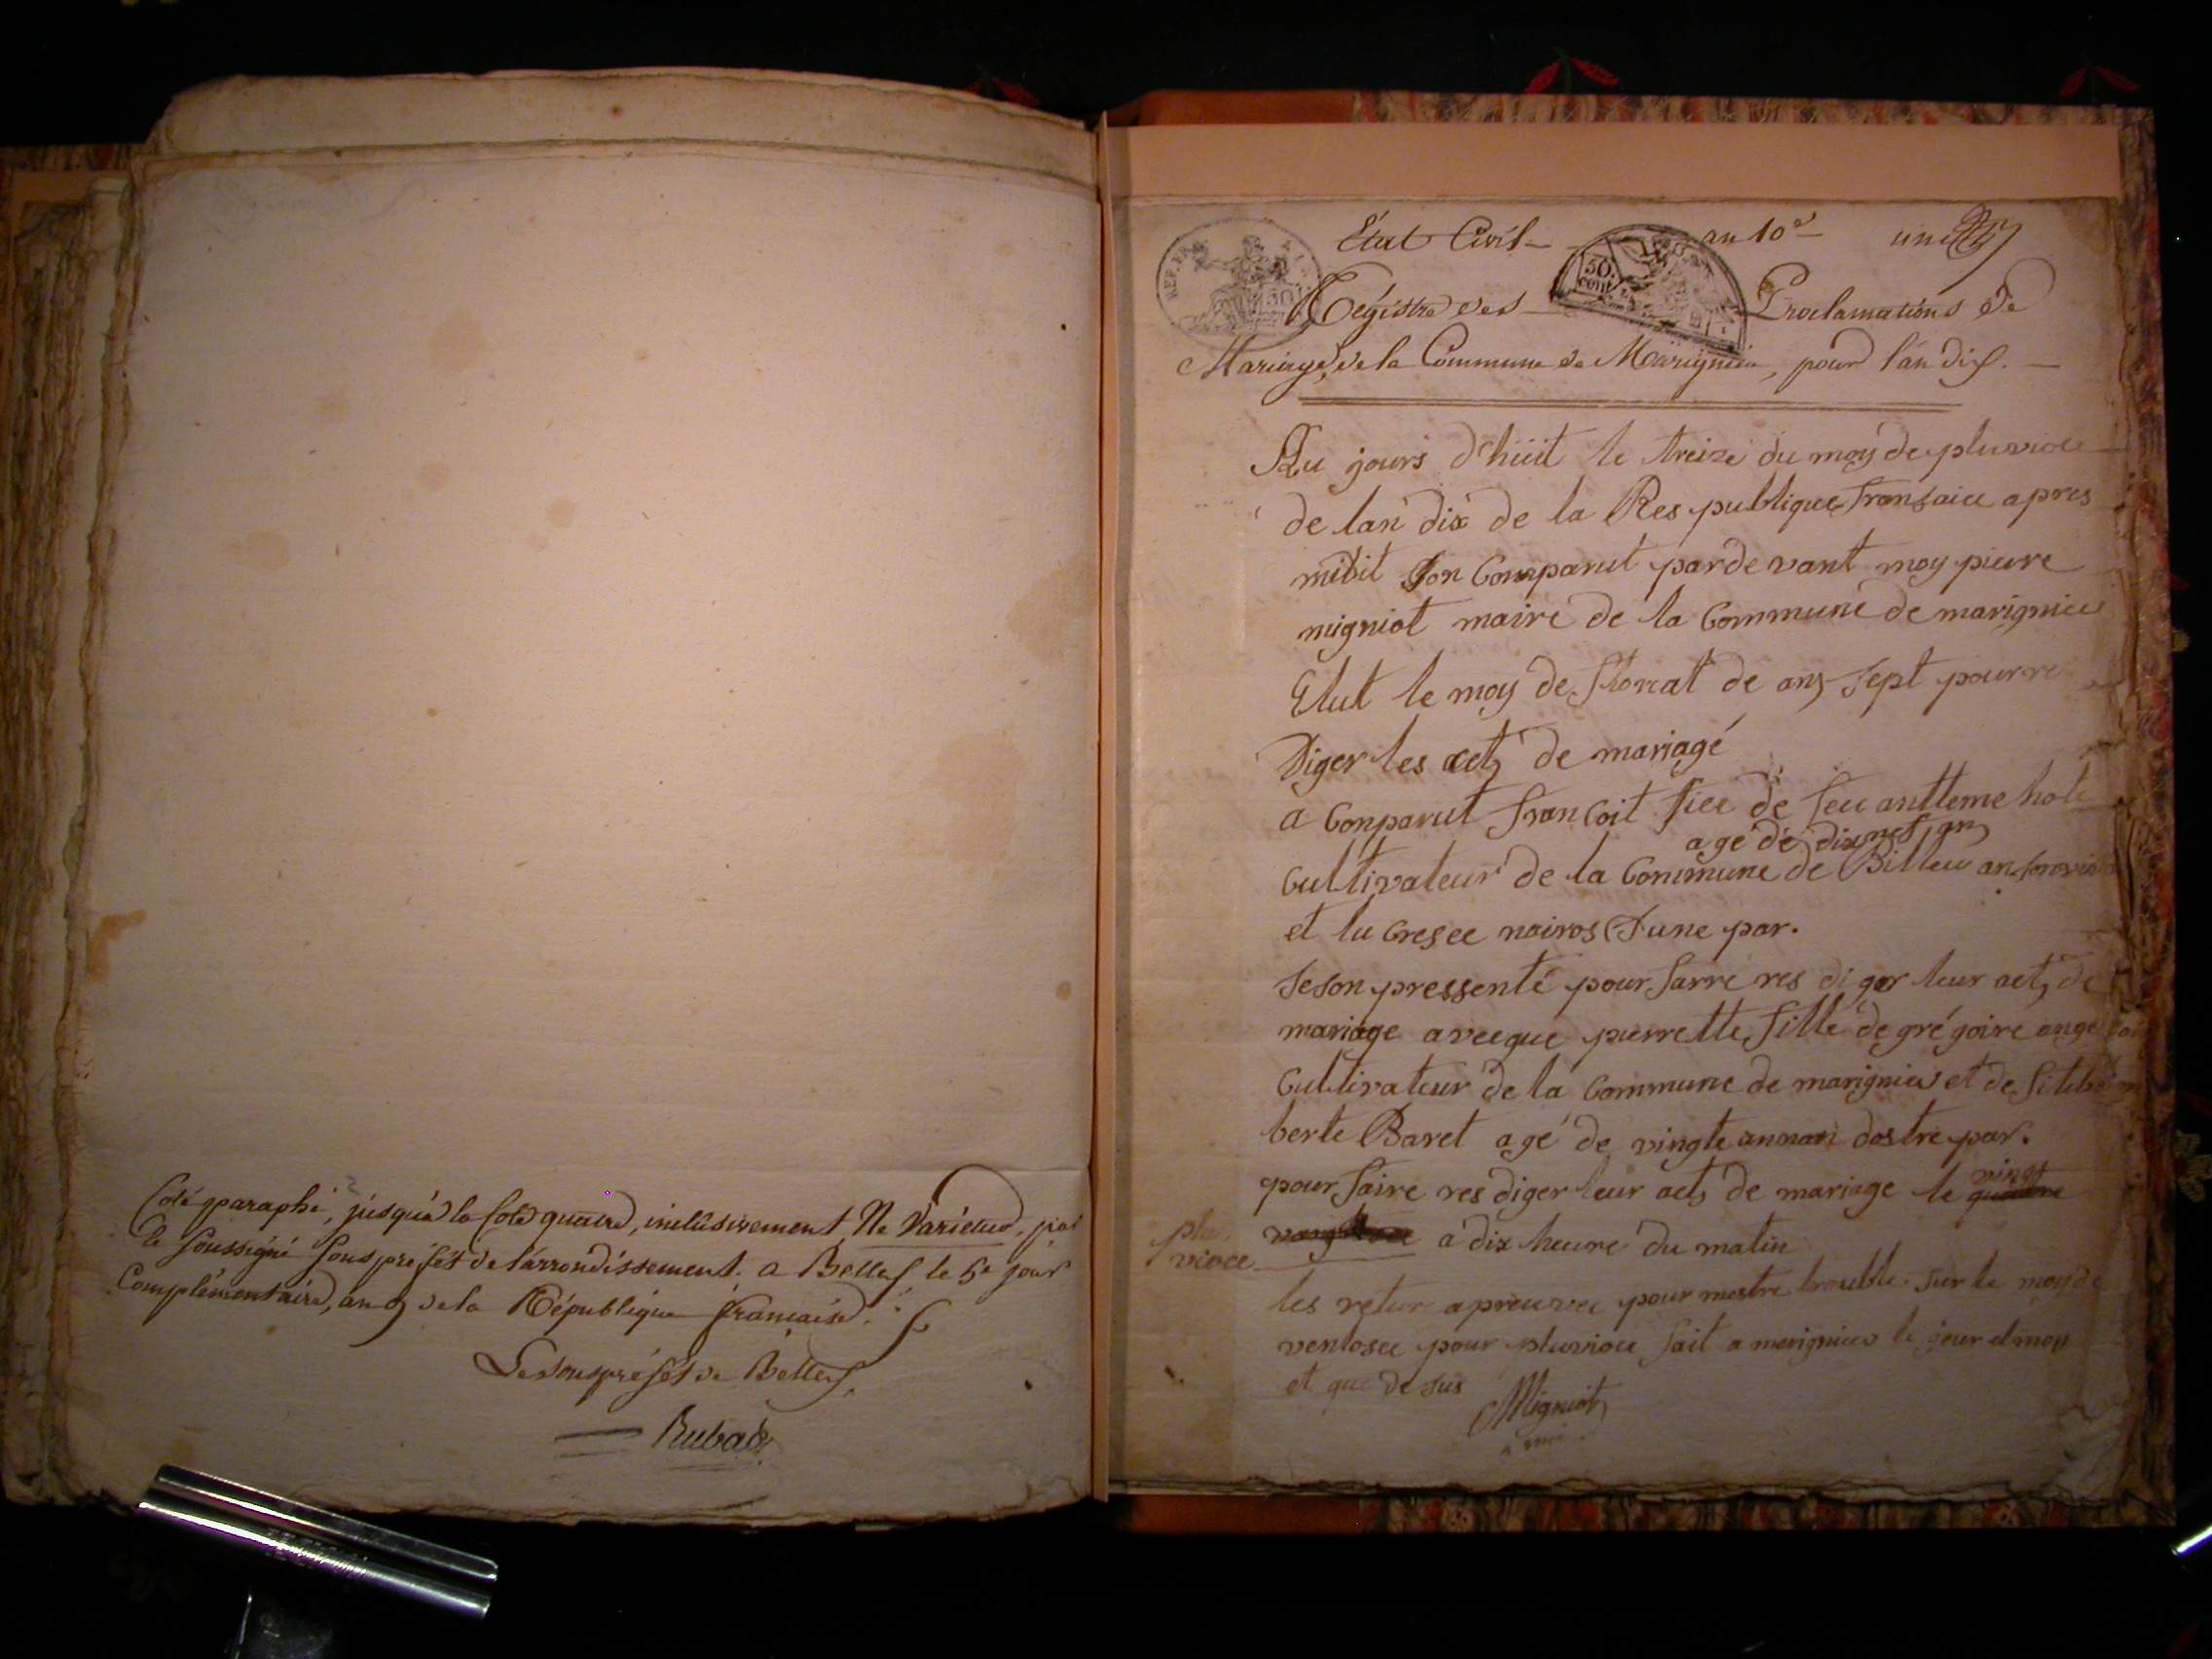 Coté & paraphé, jusqu'à la Cote quatre, inclusivement, Ne Varietur, par
le soussigné souspréfét de l'arrondissement. a Belley le 5e jour
Complémentaire, an 9 de la République française.
Le souspréfét de Belley,
Rubat
Etat Civil an 10e une
REP. FRA
50. cent
Régistre des Proclamations de
Mariage, de la Commune de Marignieu, pour l'an dix.
Au jours d'hüit le treize du moy de pluvioce
de lan dix de la Res publique franşaice apres
midit son Comparut par de vant moy pierre
migniot maire de la Commune de marignieu
Elut le moy de florrat de ans sept pour re
Diger les act, de mariagé
a Conparut franCoit fice de feu antteme
age de dix nef an,
Cultivateur de la Commune de Billeu
et lu Cresee nairos D'une par.
Se son pressenté pour farre res diger leur act, de
mariage avecque pierrette fille de grégoire
Cultivateur de la Commune de marignieu et de
berte Baret agé de vingte annan dostre par.
pour faire res diger leur act, de mariage le vingt
pluvioce a dix heure du matin
les retur apreuvee pour mestre trouble sur le moy de
ventosee pour pluvioce fait a marignieu le jour et moy
et que de sus
Migniot